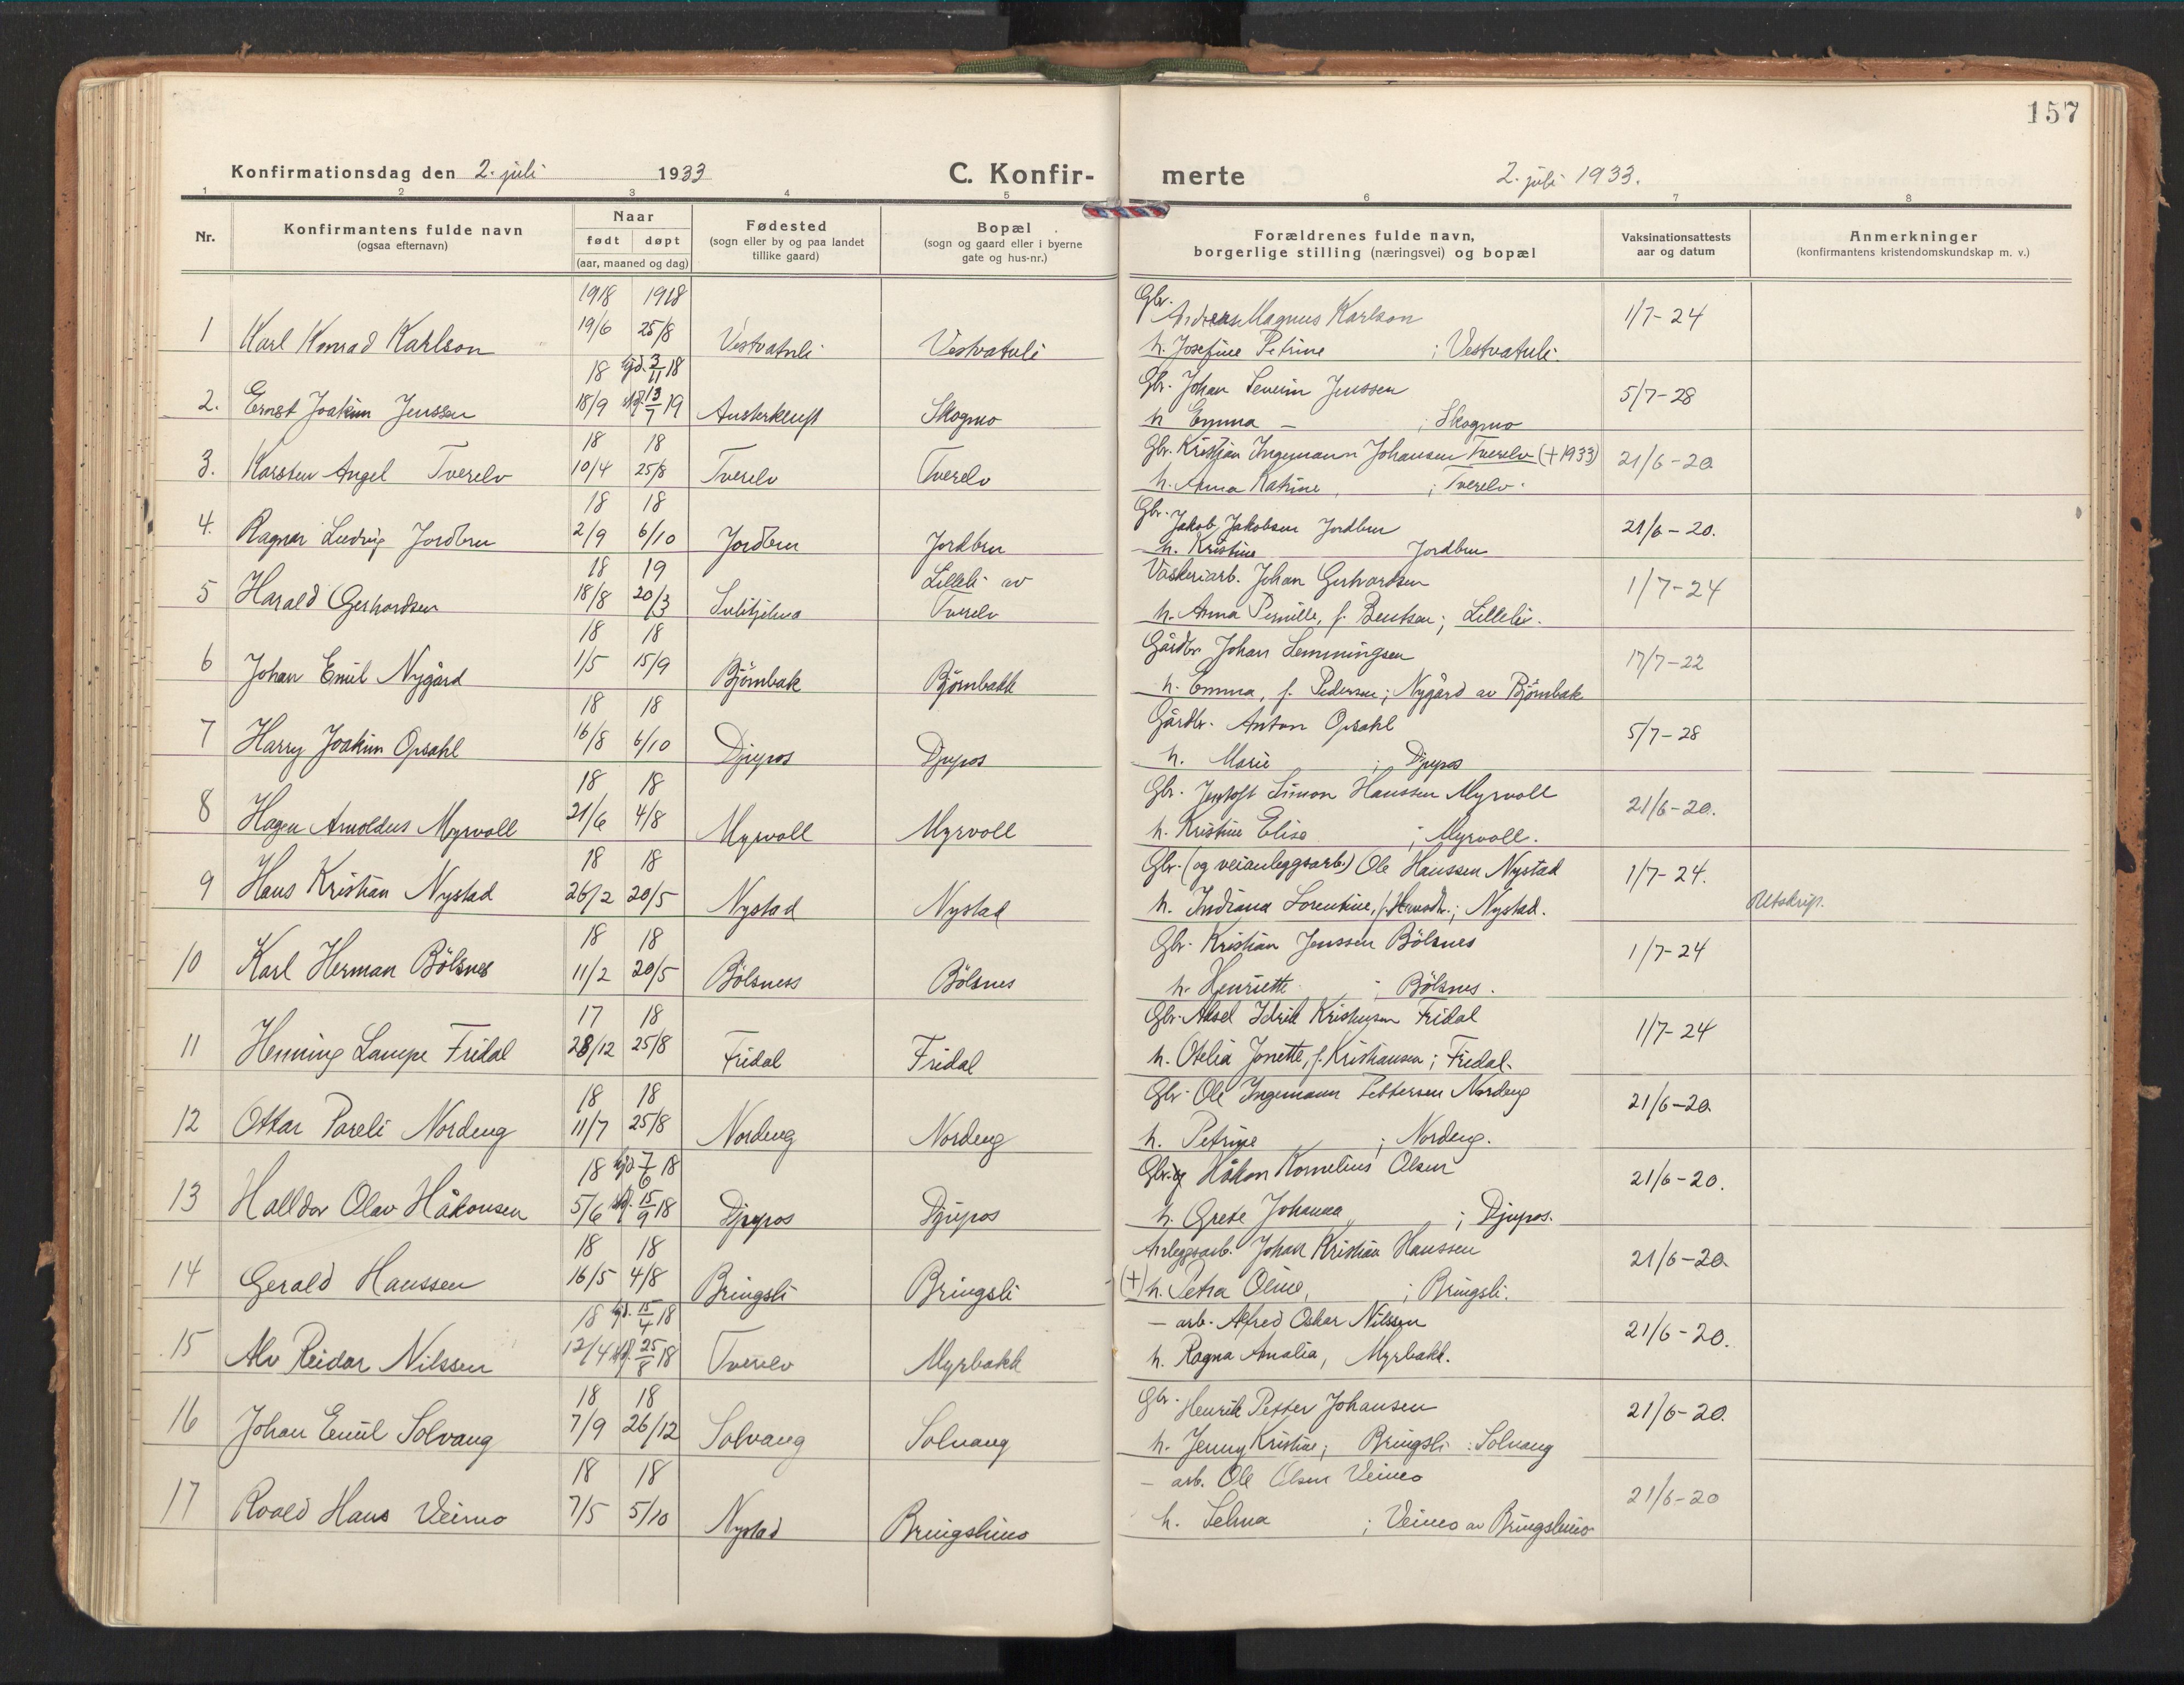 157
Konfirmationsdag den 2. juli 1933
C. Konfir-
merte
2. juli 1933.
1 2 3 4 5 6 7 8
Nr.
Konfirmantens fulde navn
(ogsaa efternavn)
Naar
født døpt
(aar, maaned og dag)
Fødested
(sogn eller by og paa landet
tillike gaard)
Bopæl
(sogn og gaard eller i byerne
gate og hus-nr.)
Forældrenes fulde navn,
borgerlige stilling (næringsvei) og bopæl
Vaksinationsattests
aar og datum
Anmerkninger
(konfirmantens kristendomskundskap m. v.)
1918 1918 Gbr.
1 Karl Konrad Karlson 19/6 25/8 Vestvatnli Vestvatnli Andreas Magnus Karlson 1/7-24
h. Josefine Petrine ; Vestvatnli.
18 hjd. 3/11 18 Gbr. Johan Severin Jenssen
2. Ernst Joakim Jenssen 18/9 13/7 19 Austerkluft Skogmo 5/7-28
h Emma - ; Skogmo
18 18 Gbr. Kristjan Ingemann Johansen Tverelv (+1933)
3. Karsten Angel Tverelv 10/4 25/8 Tverelv Tverelv 21/6-20
h. Anna Katrine, ; Tverelv.
18 18 Gbr. Jakob Jakobsen Jordbru
4. Ragnar Ludvig Jordbru 2/9 6/10 Jordbru Jordbru 21/6-20.
h. Kristine Jordbru
18 19 Lilleli av Vaskeriarb. Johan Gerhardsen
5 Harald Gerhardsen 18/8 20/3 Sulitjelma Tverelv 1/7-24
h. Anna Pernille, f. Bentsen; Lilleli.
18 18 Gårdbr Johan Lemmingsen
6 Johan Emil Nygård 1/5 15/9 Bjørnbak Bjørnbakk 17/7-22
h. Emma, f. Pedersen; Nygård av Bjørnbak
18 18 Gårdbr. Anton Opsahl
7 Harry Joakim Opsahl 16/8 6/10 Djupos Djupos 5/7-28
h. Marie ; Djupos
18 18 Gbr. Jentoft Simon Hanssen Myrvoll
8 Hagen Arnoldus Myrvoll 21/6 4/8 Myrvoll Myrvoll 21/6-20.
h. Kristine Elise ; Myrvoll.
18 18 Gbr. (og veianleggsarb.) Ole Hanssen Nystad
9 Hans Kristian Nystad 26/2 20/5 Nystad Nystad 1/7-24.
h. Indiana Lorentine, ; Nystad. Utskrift.
18 18 Gbr. Kristian Jenssen Bölsnes
10 Karl Herman Bölsnes 11/2 20/5 Bölsness Bölsnes 1/7-24
h. Henriette ; Bölsnes.
17 18 Gbr. Aksel Idrik Kristensen Fridal
11 Henning Lampe Fridal 28/12 25/8 Fridal Fridal 1/7-24
h. Otelia Jonette, f. Kristiansen; Fridal.
18 18 Gbr. Ole Ingemann Pettersen Nordeng
12 Ottar Pareli Nordeng 11/7 25/8 Nordeng Nordeng 21/6-20
h. Petrine ; Nordeng.
18 hjd. 7/6 18 Gbr. Håkon Kornelius Olsen
13 Halldor Olav Håkonsen 5/6 15/9 18 Djupos Djupos 21/6-20.
h. Grete Johanna ; Djupos.
18 18 Anleggsarb. Johan Kristian Hanssen
14 Gerald Hanssen 16/5 4/8 Bringsli Bringsli 21/6-20.
(+) h. Petra Oline, ; Bringsli.
18 hjd. 15/4 18 - arb. Alfred Oskar Nilssen
15 Alv Reidar Nilssen 12/4 25/8 18 Tverelv Myrbakk 21/6-20.
h. Ragna Amalia, Myrbakk.
18 18 Gbr. Henrik Petter Johansen
16 Johan Emil Solvang 7/9 26/12 Solvang Solvang 21/6-20.
h. Jenny Kristine; Bringsli: Solvang
18 18 - arb. Ole Olsen Veimo
17 Roald Hans Veimo 7/5 5/10 Nystad Bringslimo 21/6-20
h. Selma ; Veimo av Bringslimo